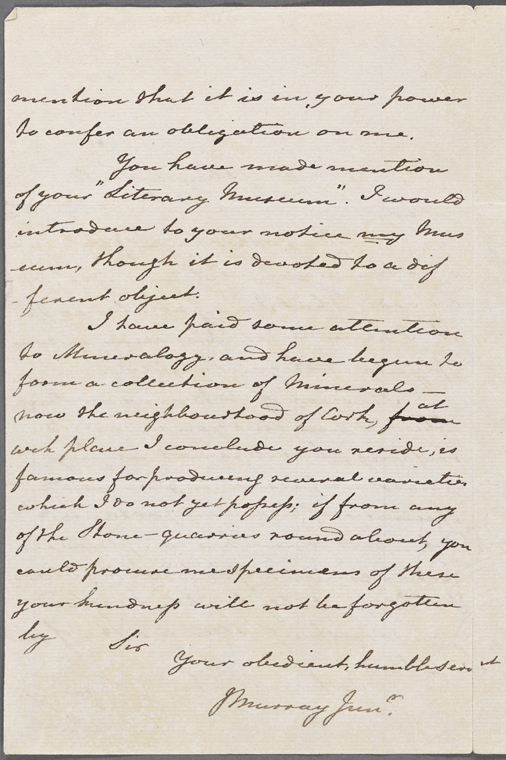 mention that it is in your power
to confer an obligation on me.
You have made mention
of your "Literary Museum". I would
introduce to your notice my Mus
-eum, though it is devoted to a dif
-ferent object.
I have paid some attention
to Mineralogy, and have begun to
form a collection of Minerals —
now the neighbourhood of Cork, from at
wch place I conclude you reside, is
famous for producing several varieties
which I do not yet possess; if from any
of the Stone-quarries round about, you
could procure me specimens of these
your kindness will not be forgotten
by Sir
Your obedient, humble servt
J Murray Junr.